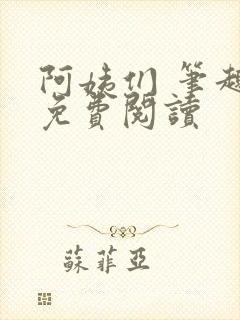 阿姨们 筆趣
免費閱讀
蘇菲亞